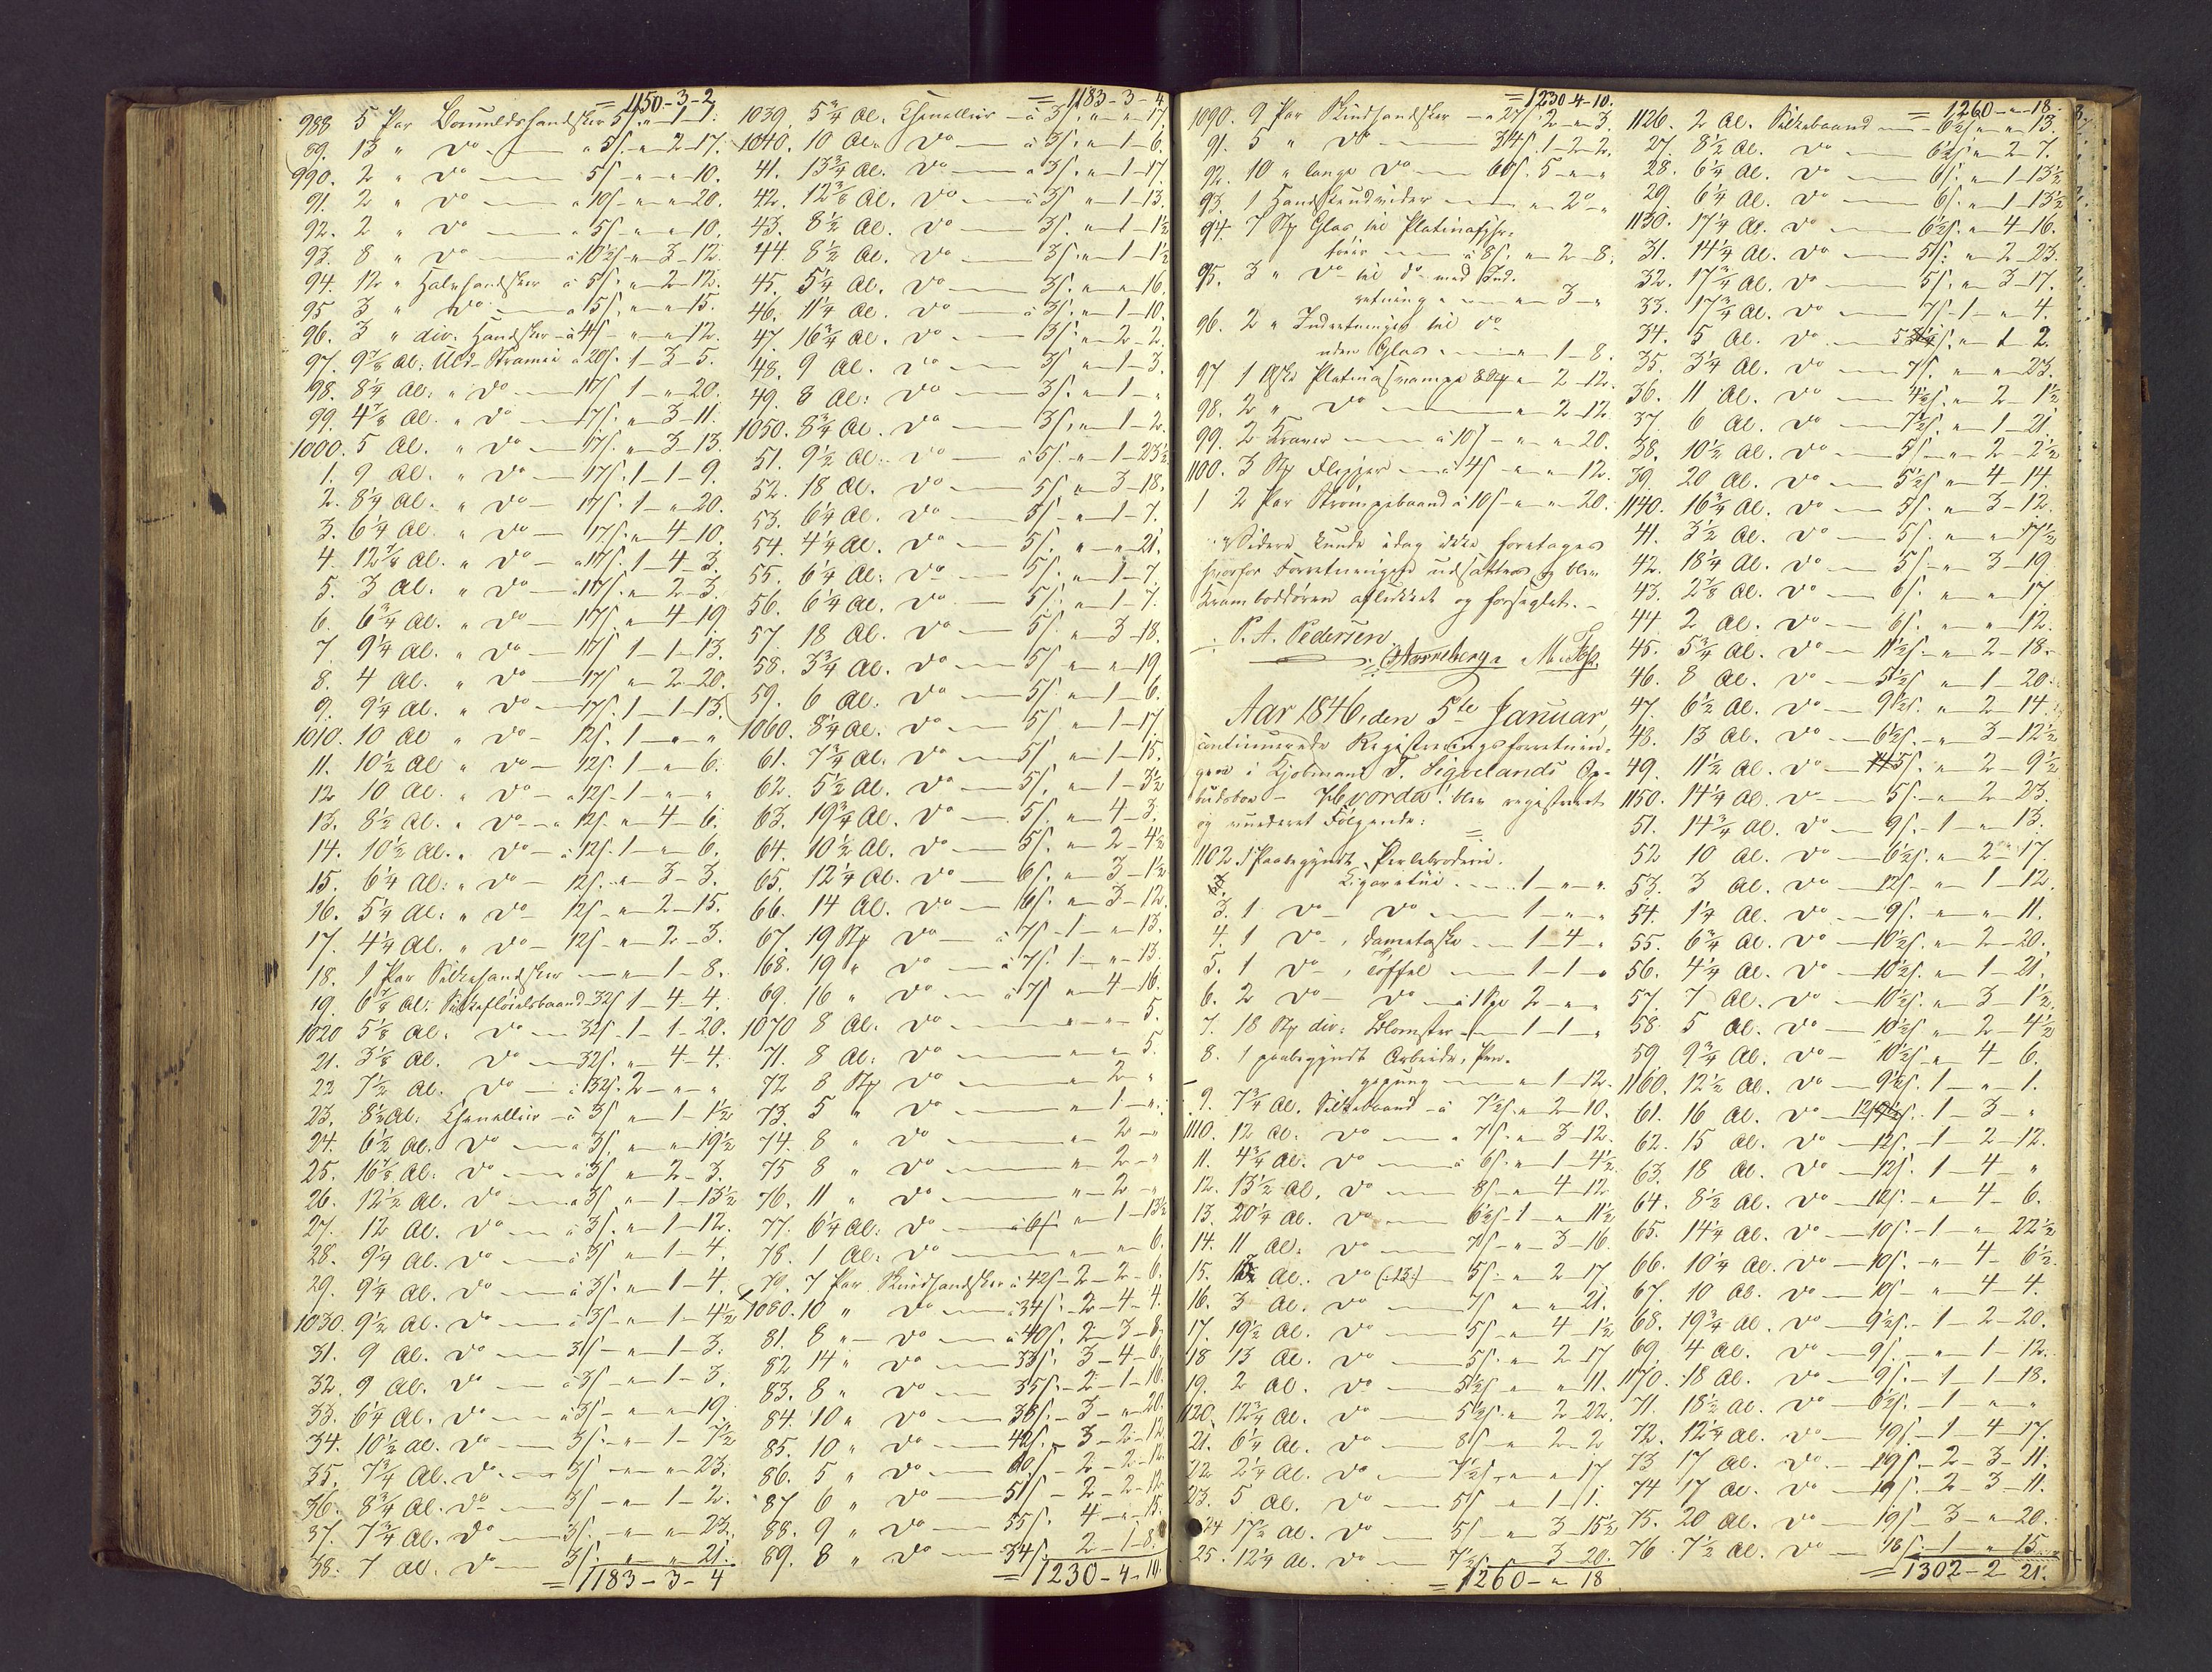 = 1150-3-2
988 5 Par Bomuldshandsker 5ſ. " 1 - 1.
89. 13 " Do — a 5ſ. - " 2 - 17.
990. 2 " Do — 5ſ - " - " 10.
91. 2 " Do — a 10ſ - " - " 20.
92. 2 " Do — a 5ſ - " - " 10.
93. 8 " Do — a 10½ſ - " 3 - 12.
94. 12 " Halvhandsker a 5ſ. " 2 - 12.
95 3 " Do — a 5ſ. " - " 15.
96. 3 " div. Handsker - a 4ſ - " - " 12.
97. 9⅞ Al. Uld-Stramei a 20ſ. 1 - 3 - 5.
98. 8¼ Al. " Do — 17ſ 1 - " 20.
99. 4⅞ Al. " Do — 17ſ. " 3 - 11.
1000. 5 Al. " Do — 17ſ. " 3 - 13.
1. 9 Al. " Do — 17ſ. 1 - 1 - 9.
2. 8¼ Al. " Do — 17ſ. 1 - " 20.
3. 6¼ Al. " Do — 17ſ. " 4 - 10.
4. 12⅞ Al. " Do — a 17ſ. 1 - 4 - 3.
5. 3 Al. " Do — 17ſ. " 2 - 3.
6. 6¾ Al. " Do — 17ſ. " 4 - 19.
7. 9¼ Al. " Do — 17ſ 1 - 1 - 13.
8. 4 Al. " Do — 17ſ " 2 - 20.
9. 9¼ Al. " Do — 17ſ. 1 - 1 - 13.
1010. 10 Al " Do — 12ſ. 1 - " - "
11. 10½ Al " Do — 12ſ. 1 - " 6.
12 10 Al. " Do — a 12ſ - 1 - " - "
13. 8½ Al. " Do — a 12ſ. " 4 - 6.
14. 10½ Al. " Do — a 12ſ. 1 - " 6.
15. 6¼ Al. " Do — 12ſ. - " 3 - 3.
16. 5¼ Al. " Do — 12ſ - " 2 - 15.
17. 4¼ Al. " Do — 12ſ - " 2 - 3.
18. 1 Par Silkehandsker — " 1 - 8.
19. 6⅞ Al. Silkefløielsbaand - 32ſ 1 - 4 - 4.
1020 5⅛ Al. Do — 32ſ - 1 - 1 - 20.
21. 3⅛ Al. Do — 32ſ. " 4 - 4.
22 7½ Al. Do — a 32ſ. 2 - " - "
23. 8½ Al. Chenellier - a 3ſ " 1 - 1½
24. 6½ Al. Do — a 3ſ. " - " 19½
25. 16⅞ Al. Do — a 3ſ " 2 - 3.
26. 12½ Al. Do — a 3ſ " 1 - 13½
27. 12 Al. Do — a 3ſ. " 1 - 12.
28. 9¼ Al. Do — a 3ſ " 1 - 4.
29. 9¼ Al. Do — a 3ſ. " 1 - 4.
1030. 9½ Al. Do — a 3ſ - " 1 - 4½
31. 9 Al. Do — 3ſ - " 1 - 3.
32. 9 Al. Do — a 3ſ - " 1 - 3.
33. 6¼ Al. Do — a 3ſ - " - " 19.
34. 10½ Al. Do — 3ſ. - " 1 - 7½
35. 7¾ Al. Do — 3ſ - " - " 23.
36. 8¾ Al. Do — 3ſ - " 1 - 2.
37. 7¾ Al. Do — 3ſ. - " - " 23.
38. 7 Al. Do — 3ſ. " - " 21.
= 1183 - 3 - 4
= 1183 - 3 - 4
1039. 5¾ Al. Chenellier — a 3ſ. " - " 17.
1040. 10 Al. Do — a 3ſ. " 1 - 6.
41. 13¾ Al. Do — a 3ſ. " 1 - 17.
42. 12⅜ Al. Do — a 3ſ " 1 - 13.
43. 8½ Al. Do — 3ſ. " 1 - 1½
44. 8½ Al. Do — 3ſ. " 1 - 1½
45. 5¼ Al. Do — 3ſ. " - " 16.
46. 11¼ Al. Do — a 3ſ. " 1 - 10.
47. 16¾ Al. Do — 3ſ. " 2 - 2.
48. 9 Al. Do — 3ſ " 1 - 3.
49. 8 Al. Do — 3ſ. " 1 - "
1050. 8¾ Al. Do — 3ſ. " 1 - 2.
51. 9½ Al. Do — a 5ſ. " 1 - 23½
52. 18 Al. Do — 5ſ " 3 - 18.
53. 6¼ Al. Do — 5ſ - " 1 - 7.
54. 4¼ Al. Do — 5ſ. " - " 21.
55. 6¼ Al. Do — 5ſ. " 1 - 7.
56. 6¼ Al. Do — 5ſ. " 1 - 7.
57. 18 Al. Do — 5ſ. " 3 - 18.
58. 3¾ Al. Do — 5ſ " - " 19
59. 6 Al. Do — 5ſ. " 1 - 6.
1060. 8¼ Al. Do — 5ſ " 1 - 17.
61. 7¾ Al. Do — 5ſ " 1 - 15.
62. 5½ Al. Do — 5ſ. " 1 - 3½
63. 19¾ Al. Do — 5ſ. " 4 - 3.
64. 10½ Al. Do — 5ſ. " 2 - 4½
65. 12¼ Al. Do — 6ſ. " 3 - 1½
66. 14 Al. Do — 6ſ. " 3 - 12.
67. 19 St. Do — a 7ſ - 1 - " 13.
168. 19 " Do — a 7ſ. 1 - " 13.
69. 16 " Do — a 7ſ " 4 - 16.
1070 8 Al. Do — " - " 5.
71. 8 Al. Do — " - " 5.
72 8 St. Do — " 2 - "
73. 5 " Do — " 1 - "
74. 8 " Do — " 2 - "
75 8 " Do — " 2 - "
76. 11 " Do — " 2 - "
77. 6¼ Al. Do — a 6ſ. " 1 - 13½
78. 1 Al. Do — " - " 6.
79. 7 Par Skindhandsker a 42ſ - 2 - 2 - 6.
1080. 10 " Do — a 34ſ. - 2 - 4 - 4.
81. 8 " Do — a 40ſ. 2 - 3 - 8.
82 14 " Do — 33ſ. 3 - 4 - 6.
83. 8 " Do — 35ſ. - 2 - 1 - 16.
84. 10 " Do — 38ſ. - 3 - " 20.
85. 10 " Do — 42ſ. - 3 - 2 - 12.
86. 5 " Do — 60ſ - 2 - 2 - 12.
87 6 " Do — 51ſ - 2 - 2 - 12.
88. 9 " Do — 55ſ. 4 - " 15.
89. 8 " Do — 34ſ. 2 - 1 - 8.
= 1230 - 4 - 10.
= 1230 - 4 - 10.
1090. 9 Par Skindhandsker — a 27ſ. 2 - " 3.
91. 5 " Do — 34ſ. 1 - 2 - 2.
92. 10 " lange Do — 60ſ. 5 - " - "
93. 1 Handskeudvider — " 2 - "
94. 7 St. Glas til Platinafyr-
tøier — a 8ſ. " 2 - 8.
95. 3 " Do til do med Ind-
retning " — " 3 - "
96. 2 " Indretninger til do
uden Glas — " 1 - 8.
97 1 Æske Platinasvampe 8 St. " 2 - 12.
98. 2 " Do — " 2 - 12
99. 2 Kraver — a 10ſ - " - " 20.
1100. 3 St. Flipper — a 4ſ - " - " 12.
1 2 Par Strømpebaand a 10ſ - " - " 20.
Videre kunde idag ikke foretages
hvorfor Forretningen udsattes og blev
Kramboddøren aflukket og forseglet. —
P. A. Pedersen
Aar 1846, den 5te Januar
continuerede Registreringsforretnin-
gen i Kjøbmand T. Sigvelands Op-
budsbo — Hvorda! blev registreret
og vurderet Følgende:
1102. 1 Paabegyndt Perlebroderi.
Cigaretui — 1 - " - "
3. 1 Do — Do — 1 - " - "
4. 1 Do — , Dametaske — 1 - 4 - "
5. 1 Do — , Tøffel — 1 - 1 - "
6. 2 Do — Do — a 1 Spd 2 - " - "
7. 18 St. div. Blomster — 1 - 1 - "
8. 1 paabegyndt Arbeide, Pen-
gepung — " 1 - 12.
9. 7¾ Al. Silkebaand - a 7½ſ. " 2 - 10.
1110. 12 Al. Do — a 7ſ. " 3 - 12.
11. 4¾ Al. Do — a 6ſ. " 1 - 4½
12. 13½ Al. Do — 8ſ - " 4 - 12
13. 20¼ Al. Do — 6½ſ - 1 - " 11½
14. 11 Al. Do — 8ſ - " 3 - 16.
15. Al. Do (: 13 :) — 5ſ - " 2 - 17
16. 3 Al. Do — 7ſ " - " 21.
17. 19½ Al. Do — 5ſ - " 4 - 1½
18 13 Al. Do — 5ſ. " 2 - 17
19. 2 Al. Do — 5½ſ " - " 11.
1120. 12¾ Al. Do — 5½ſ. " 2 - 22.
21. 6¼ Al. Do — 8ſ - " 2 - 2
22 2¼ Al. Do — 7½ſ. " - " 17
23. 5 Al. Do — 5ſ - " 1 - 1.
24 17½ Al. Do — 5ſ - " 3 - 15½
25. 12¼ Al. Do — 7½ſ " 3 - 20.
= 1260 - " 18
= 1260 - " - 18.
1126. 2 Al. Silkebaand — 6½ſ " - " 13.
27. 8½ Al. Do — 6½ſ " 2 - 7.
28. 6¼ Al. Do — 6ſ. " 1 - 13½
29. 6¼ Al. Do — 6ſ. " 1 - 13½
1130. 17¼ Al. Do — 6½ſ. " 4 - 16.
31. 14¼ Al. Do — 5ſ. " 2 - 23.
32. 17¾ Al. Do — 5ſ. " 3 - 17.
33. 17¾ Al. Do — 7ſ - 1 - " 4.
34. 5 Al. Do — " 1 - 2.
35. 3¼ Al. Do — 7ſ. " - " 23.
36. 11 Al. Do — 4½ſ. " 2 - 1½
37. 6 Al. Do — 7½ſ. " 1 - 21.
38. 10½ Al. Do — 5ſ - " 2 - 2½
39. 20 Al. Do — 5½ſ " 4 - 14.
1140. 16¾ Al. Do — 5ſ. " 3 - 12.
41. 3½ Al. Do — 5ſ. " - " 17½
42. 18¼ Al. Do — 5ſ - " 3 - 19.
43. 2⅞ Al. Do — 6ſ. " - " 17.
44 2 Al. Do — 6ſ. " - " 12.
45. 5¾ Al. Do — 11½ſ. " 2 - 18.
46. 8 Al. Do — 5½ſ " 1 - 20.
47. 6½ Al. Do — 9½ſ. " 2 - 14.
48. 13 Al. Do — 6½ſ. - " 3 - 12½
49. 11½ Al. Do — 5ſ. " 2 - 9½
1150. 14¼ Al. Do — 5ſ. - " 2 - 23.
51. 14¾ Al. Do — 9ſ. - 1 - " 13.
52 10 Al. Do — 6½ſ. " 2 - 17.
53. 3 Al. Do — 12ſ - " 1 - 12.
54. 1¼ Al. Do — 9ſ. - " - " 11.
55. 6¾ Al. Do — 10½ſ. " 2 - 20.
56. 4¼ Al. Do — 10½ſ. " 1 - 21.
57. 7 Al. Do — 10½ſ. " 3 - 1½
58. 5 Al. Do — 10½ſ " 2 - 4½
59. 9¾ Al. Do — 10½ſ - " 4 - 6.
1160. 12½ Al. Do — 9½ſ. 1 - " 1.
61. 16 Al. Do — 12ſ. 1 - 3 - "
62. 15 Al. Do — 12ſ. - 1 - 2 - 12.
63. 18 Al. Do — 12ſ. 1 - 4 - "
64. 8½ Al. Do — 12ſ. - " 4 - 6.
65. 14¼ Al. Do — 10ſ. - 1 - " 22½
66. 10¼ Al. Do — 10ſ. - " 4 - 6½
67. 10 Al. Do — 10ſ - " 4 - 4.
68. 19¾ Al. Do — 9½ſ. - 1 - 2 - 20.
69. 4 Al. Do — 9ſ. - " 1 - 12.
1170. 18 Al. Do — 9ſ. - 1 - 1 - 18.
71. 18½ Al. Do — 6½ſ. - 1 - " - "
72. 12¼ Al. Do — 19ſ. - 1 - 4 - 17.
73 17 Al. Do — 19ſ - 2 - 3 - 11.
74 17 Al. Do — 19ſ - 2 - 3 - 11.
75. 20 Al. Do — 19ſ - 3 - " 20.
76. 7½ Al. Do — 18ſ - 1 - " 15.
= 1302 - 2 - 21.